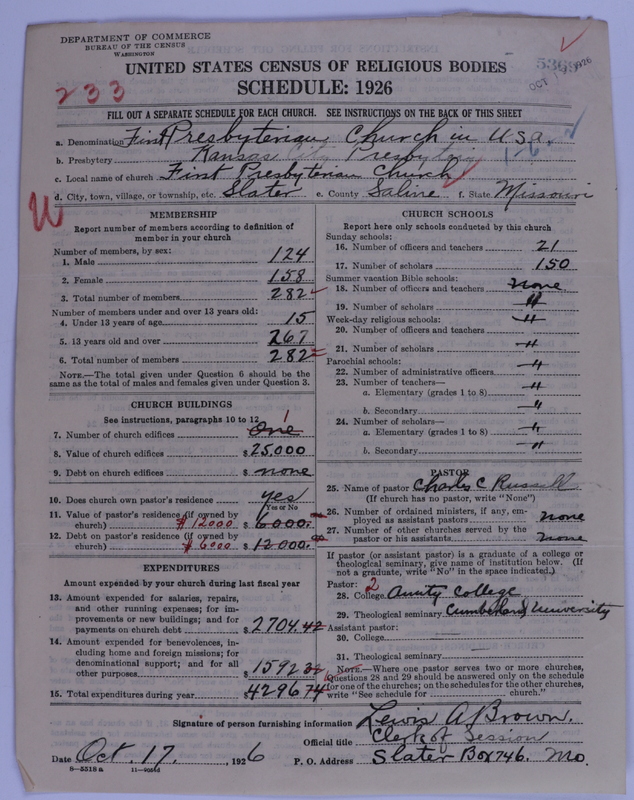 DEPARTMENT OF COMMERCE
BUREAU OF THE CENSUS
WASHINGTON
UNITED STATES CENSUS OF RELIGIOUS BODIES
SCHEDULE: 1926
233
OCT 1926
FILL OUT A SEPARATE SCHEDULE FOR EACH CHURCH. SEE INSTRUCTIONS ON THE BACK OF THIS SHEET
a. Denomination First Presbyterian Church in U.S.A.
b. Presbytery Kansas City Presbytery
c. Local name of church First Presbyterian Church
d. City, town, village, or township, etc. Slater e. County Saline f. State Missouri
MEMBERSHIP
Report number of members according to definition of
member in your church
Number of members, by sex:
1. Male 124
2. Female 158
3. Total number of members 282
Number of members under and over 13 years old:
4. Under 13 years of age 15
5. 13 years old and over 267
6. Total number of members 282
NOTE.—The total given under Question 6 should be the
same as the total of males and females given under Question 3.
CHURCH BUILDINGS
See instructions, paragraphs 10 to 12
7. Number of church edifices One 1
8. Value of church edifices $ 25,000
9. Debt on church edifices $ none
10. Does church own pastor's residence yes
Yes or No
11. Value of pastor's residence (if owned by
church) $12000 $ 6000.
12. Debt on pastor's residence (if owned by
church) $6000 $ 12000.
EXPENDITURES
Amount expended by your church during last fiscal year
13. Amount expended for salaries, repairs,
and other running expenses; for im-
provements or new buildings; and for
payments on church debt $ 2704.42
14. Amount expended for benevolences, in-
cluding home and foreign missions; for
denominational support; and for all
other purposes $ 1592 32
15. Total expenditures during year 4296 74
CHURCH SCHOOLS
Report here only schools conducted by this church
Sunday schools:
16. Number of officers and teachers 21
17. Number of scholars 150
Summer vacation Bible schools:
18. Number of officers and teachers none
19. Number of scholars "
Week-day religious schools:
20. Number of officers and teachers "
21. Number of scholars "
Parochial schools:
22. Number of administrative officers "
23. Number of teachers—
a. Elementary (grades 1 to 8) "
b. Secondary "
24. Number of scholars—
a. Elementary (grades 1 to 8) "
b. Secondary "
PASTOR
25. Name of pastor Charles C Russell
(If church has no pastor, write "None")
26. Number of ordained ministers, if any, em-
ployed as assistant pastors none
27. Number of other churches served by the
pastor or his assistants none
If pastor (or assistant pastor) is a graduate of a college or
theological seminary, give name of institution below. (If
not a graduate, write "No" in the space indicated.)
Pastor: 2
28. College Amity College
29. Theological seminary Cumberland University
Assistant pastor:
30. College
31. Theological seminary
NOTE.—Where one pastor serves two or more churches,
Questions 28 and 29 should be answered only on the schedule
for one of the churches; on the schedules for the other churches,
write "See schedule for church."
Signature of person furnishing information Lewis A. Brown.
Official title Clerk of Session
Date Oct. 17. , 1926 P. O. Address Slater Box 746. Mo.
8—5518a 11—9056d